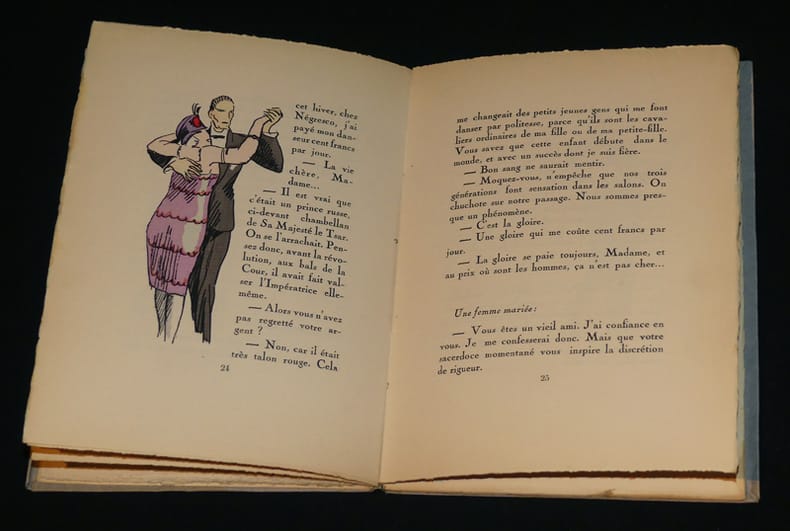 cet hiver, chez
Négresco, j'ai
payé mon dan-
seur cent francs
par jour.
— La vie
chère, Ma-
dame...
— Il est vrai que
c'était un prince russe,
ci-devant chambellan
de Sa Majesté le Tsar.
On se l'arrachait. Pen-
sez donc, avant la révo-
lution, aux bals de la
Cour, il avait fait val-
ser l'Impératrice elle-
même.
— Alors vous n'avez
pas regretté votre ar-
gent ?
— Non, car il était
très talon rouge. Cela
24
me changeait des petits jeunes gens qui me font
danser par politesse, parce qu'ils sont les cava-
liers ordinaires de ma fille ou de ma petite-fille.
Vous savez que cette enfant débute dans le
monde, et avec un succès dont je suis fière.
— Bon sang ne saurait mentir.
— Moquez-vous, n'empêche que nos trois
générations font sensation dans les salons. On
chuchote sur notre passage. Nous sommes pres-
que un phénomène.
— C'est la gloire.
— Une gloire qui me coûte cent francs par
jour.
— La gloire se paie toujours, Madame, et
au prix où sont les hommes, ça n'est pas cher...
Une femme mariée :
— Vous êtes un vieil ami. J'ai confiance en
vous. Je me confesserai donc. Mais que votre
sacerdoce momentané vous inspire la discrétion
de rigueur.
25